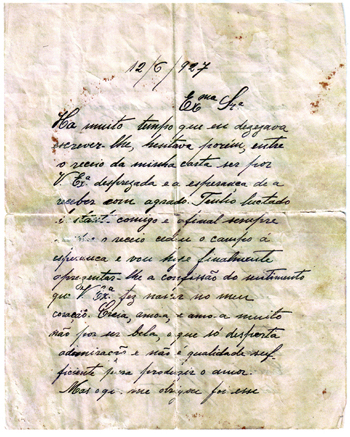 12/6/927
Exma Sra
Ha muito tempo que eu dezejava
screver-lhe, luctava porem, entre
o receio da minha carta ser por
V. Exa despresada e a esperança de a
receber com agrado. Tenho luctado
comigo e afinal sempre
o receio cedeu o campo á
esperança e vou hoje finalmente
apresentar-lhe a confissão do sentimento
que V. Exa fez nascer no meu
coração. Creia, amo-a e amo-a muito
não por ser bela, o que só desperta
admiração e não é qualidade suf-
ficiente para produzir o amor.
Mas o que me